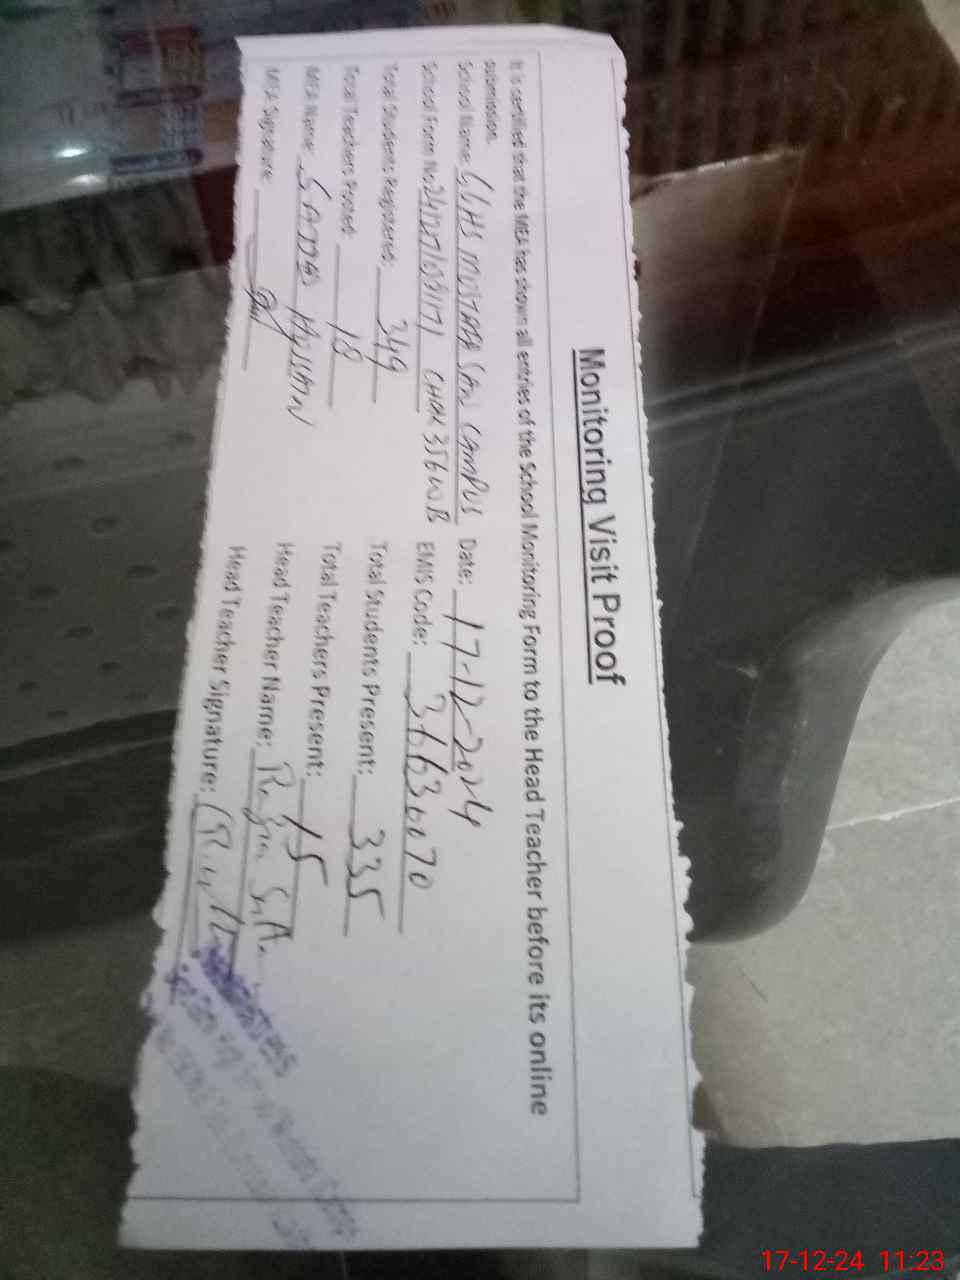 Monitoring Visit Proof
It is certified that the MEA has shown all entries of the School Monitoring Form to the Head Teacher before its online
submission.
School Name: GGHS MUSTAFA SAN CAMPUS Date: 17-12-2024
School Form No. CHAK 356 W.B EMIS Code: 36630070
Total Students Registered: 349 Total Students Present: 335
Total Teachers Posted: 18 Total Teachers Present: 15
MEA Name: HUSSAIN Head Teacher Name:
MEA Signature: Head Teacher Signature:
17-12-24 11:23